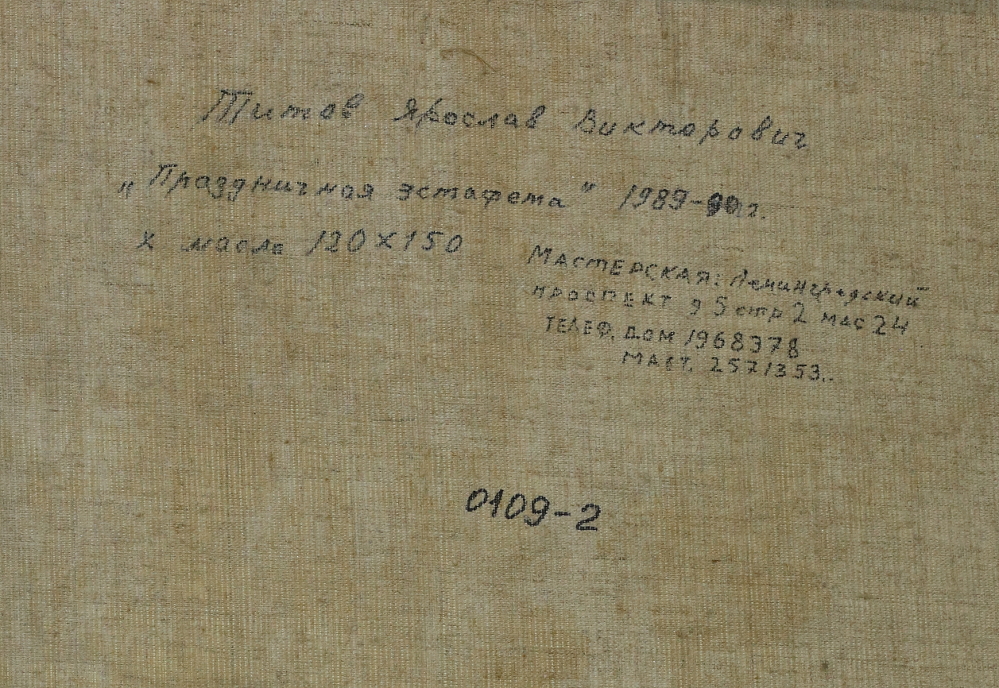 Титов Ярослав Викторович
„Праздничная эстафета" 1989-90г.
х масло 120×150
МАСТЕРСКАЯ: Ленинградский
проспект д 5 стр 2 мас 24
ТЕЛЕФ. ДОМ 1968378
МАСТ. 2571353..
0109-2